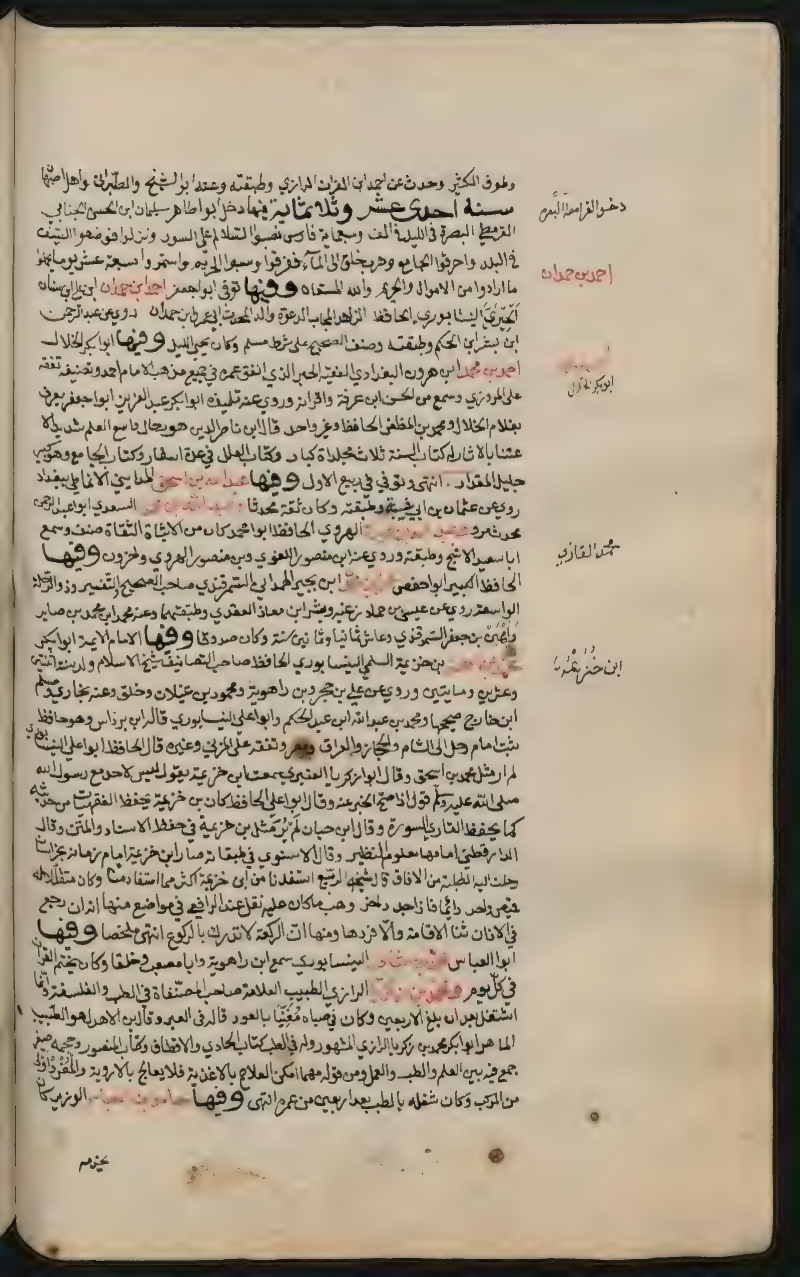 وطوف الكثير وحدث عن احمد ابن الفرات الرازي وطبقته وعنه ابو الشيخ والطبراني واهل اصبهان
سنة احدى عشر وثلاثماية فيها دخل ابو اطاهر سليمان ابن الحسن الجنابي
دخول القرامطة البصرة
القرمطي البصرة في الليل في الف وسبعماية فارس نصبوا السلالم على السور ونزلوا فوضعوا السيف
في البلد واحرقوا الجامع وهرب خلق الى الماء فغرقوا وسبوا الحريم واستمروا سبعة عشر يوما يحملوا
احمد بن حمدان
ما ارادوا من الاموال والحريم والله المستعان وفيها توفي ابو جعفر احمد ابن حمدان ابن علي ابن سنان
الحيري النيسابوري الحافظ الزاهد المجاب الدعوة والد المحدث ابي عمرو بن حمدان روى عن عبد الرحمن
ابن بشر ابن الحكم وطبقته وصنف الصحيح على شرط مسلم وكان يحيي الليل وفيها ابو بكر الخلال
احمد بن محمد ابن هرون البغدادي الفقيه الحبر الذي انفق عمره في جمع مذهب الامام احمد وتصنيفه تفقه
ابو بكر الخلال
على المروذي وسمع من الحسن ابن عرفة واقرانه وروى عنه تلميذه ابو بكر عبد العزيز ابو جعفر يعرف
بغلام الخلال ومحمد بن المظفر الحافظ وغير واحد قال ابن ناصر الدين هو رحال واسع العلم شديد الا
عتنا بالاثار له كتاب السنة ثلاث مجلدات كبار وكتاب العلل في عدة اسفار وكتاب الجامع وهو كبير
جليل المقدار انتهى وتوفي في ربيع الاول وفيها عبد الله بن اسحق المدايني الانماطي ببغداد
روى عن عثمان بن ابي شيبة وطبقته وكان ثقة محدثا وعبد الله بن محمد السعدي ابو عبد الرحمن
محدث مرو الهروي الحافظ ابو محمد كان من الاثبات الثقاة صنف وسمع
محمد الغازي
ابا سعيد الاشج وطبقته وروى عنه ابن منصور اللغوي وبن منصور الهروي واخرون وفيها
الحافظ الكبير ابو حفص ابن بجير الهمداني السمرقندي صاحب الصحيح والتفسير وذو الرحلة
الواسعة روى عن عيسى بن حماد زغبة وبشر ابن معاذ العقدي وطبقتهما وعنه محمد ابن محمد بن صابر
بن جعفر السمرقندي وعاش ثمانيا وثمانين سنة وكان صدوقا وفيها الامام الايمة ابو بكر
ابن خزيمة
بن خزيمة السلمي النيسابوري الحافظ صاحب التصانيف شيخ الاسلام ولد سنة اثنتين
وعشرين ومايتين وروى عن علي بن حجر وبن راهوية ومحمود بن غيلان وخلق وعنه بخاري ومسلم
ابن خارج صحيحهما ومحمد بن عبد الله ابن عبد الحكم وابو علي النيسابوري قال ابن برداس وهو حافظ
ثبت امام رحل الى الشام والحجاز والعراق ومصر وتفقه على المزني وغيره قال الحافظ ابو علي النيسابوري
لم ار مثل محمد بن اسحق وقال ابو زكريا العنبري سمعت ابن خزيمة يقول ليس لاحد مع رسول الله
صلى الله عليه وسلم قول اذا صح الخبر عنه وقال ابو علي الحافظ كان بن خزيمة يحفظ الفقهيات من حديثه
كما يحفظ القارئ السورة وقال ابن حبان لم ير مثل بن خزيمة في حفظ الاسناد والمتن وقال
الدارقطني اماما معدوم النظير وقال الاسنوي في طبقاته صار ابن خزيمة امام زمانه بخراسان
رحلت اليه الطلبة من الافاق قال شيخه الربيع استفدنا من ابن خزيمة اكثر مما استفاد منا وكان متقللا له
قميص واحد دائما فاذا جدد اخر وهب ما كان عليه نقل عنه الرافعي في مواضع منها انه ان رجع
في الاذان ثنا الاقامة والا افردها ومنها ان الركعة لا تدرك بالركوع انتهى ملخصا وفيها
ابو العباس النيسابوري سمع ابن راهوية وابا مصعب وخلقا وكان يختم القران
في كل يوم ومحمد بن زكريا الرازي الطبيب العلامة صاحب المصنفاة في الطب والفلسفة وانما
اشتغل بعد ان بلغ الاربعين وكان في صباه مغنيا بالعود قاله في العبر وقال بن الاهدل هو الطبيب
الماهر ابو بكر محمد بن زكريا الرازي المشهور وله في الطب كتاب الحاوي والاقطاق وكتاب المنصوري وحجمه صغير
جمع فيه بين العلم والطب والعمل ومن قوله مهما امكن العلاج بالاغذية فلا يعالج بالادوية والمفرد اولى
من المركب وكان شغله بالطب بعد اربعين من عمره انتهى وفيها حامد بن العباس الوزير كان
يخدمه